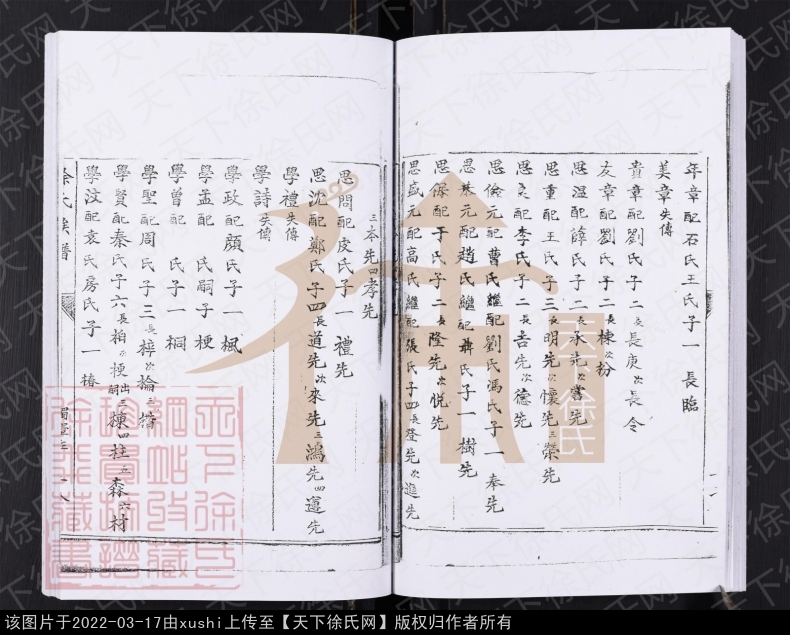 年章配石氏王氏子一長臨
美章失傳
貴章配劉氏子二長長庚次長令
友章配劉氏子二長棟次枌
思温配薛氏子二長承先次書先
思重配王氏子三長明先次懷先三榮先
思 配李氏子二長吉先次德先
思儉元配曹氏繼配劉氏馮氏子一奉先
思 元配趙氏繼配 氏子一樹先
思傑配于氏子二長隆先次悦先
思盛元配高氏繼配張氏子四長登先次進先
三本先四孝先
思問配皮氏子一禮先
思沈配鄭氏子四長道先次來先三鴻先四運先
學禮失傳
學詩失傳
學政配顏氏子一楓
學孟配 氏嗣子梗
學曾配 氏子一桐
學聖配周氏子三長梓次綸三
學賢配秦氏子六長柏次梗出嗣三棟四柱五森六材
學汶配袁氏房氏子一椿
徐氏族譜
天下徐氏
天下徐氏网
该图片于2022-03-17由xushi上传至【天下徐氏网】版权归作者所有